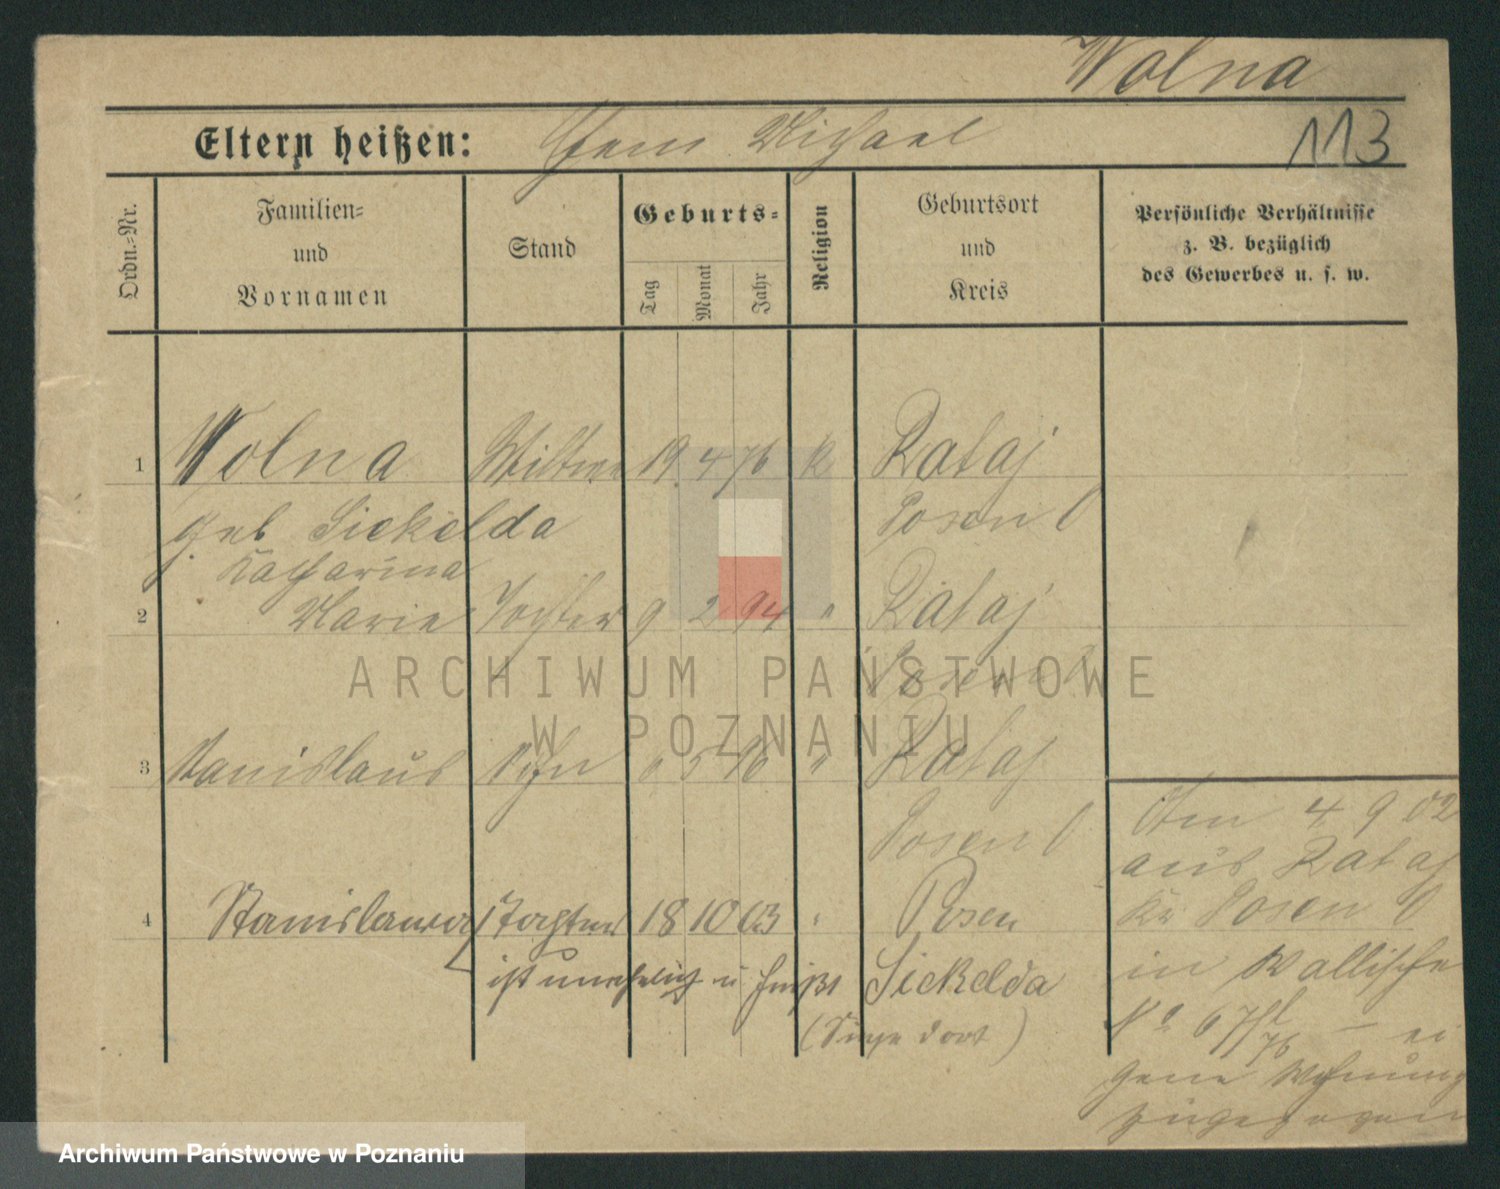 Wolna
Eltern heißen: Michael
113
Ordn.=Nr.
Familien=
und
Vornamen
Stand
Geburts=
Tag
Monat
Jahr
Religion
Geburtsort
und
Kreis
Persönliche Verhältnisse
z. B. bezüglich
des Gewerbes u. s. w.
1 Wolna Wittwe 19 4 76 K Rataj
geb Siekelda Posen O
Katharina
2 Marie Tochter 9 2 94 " Rataj
Posen O
3 Stanislaus Sohn 5 96 " Rataj
Posen O
4 Stanislawa Tochter 18 10 03 " Posen
ist unehelich u heißt Siekelda
(Siehe dort)
Am 4 9 02
aus Rataj
Kr Posen O
in Wallische
No 67 76 – ei
gene Wohnung
zugezogen
ARCHIWUM PAŃSTWOWE
W POZNANIU
Archiwum Państwowe w Poznaniu